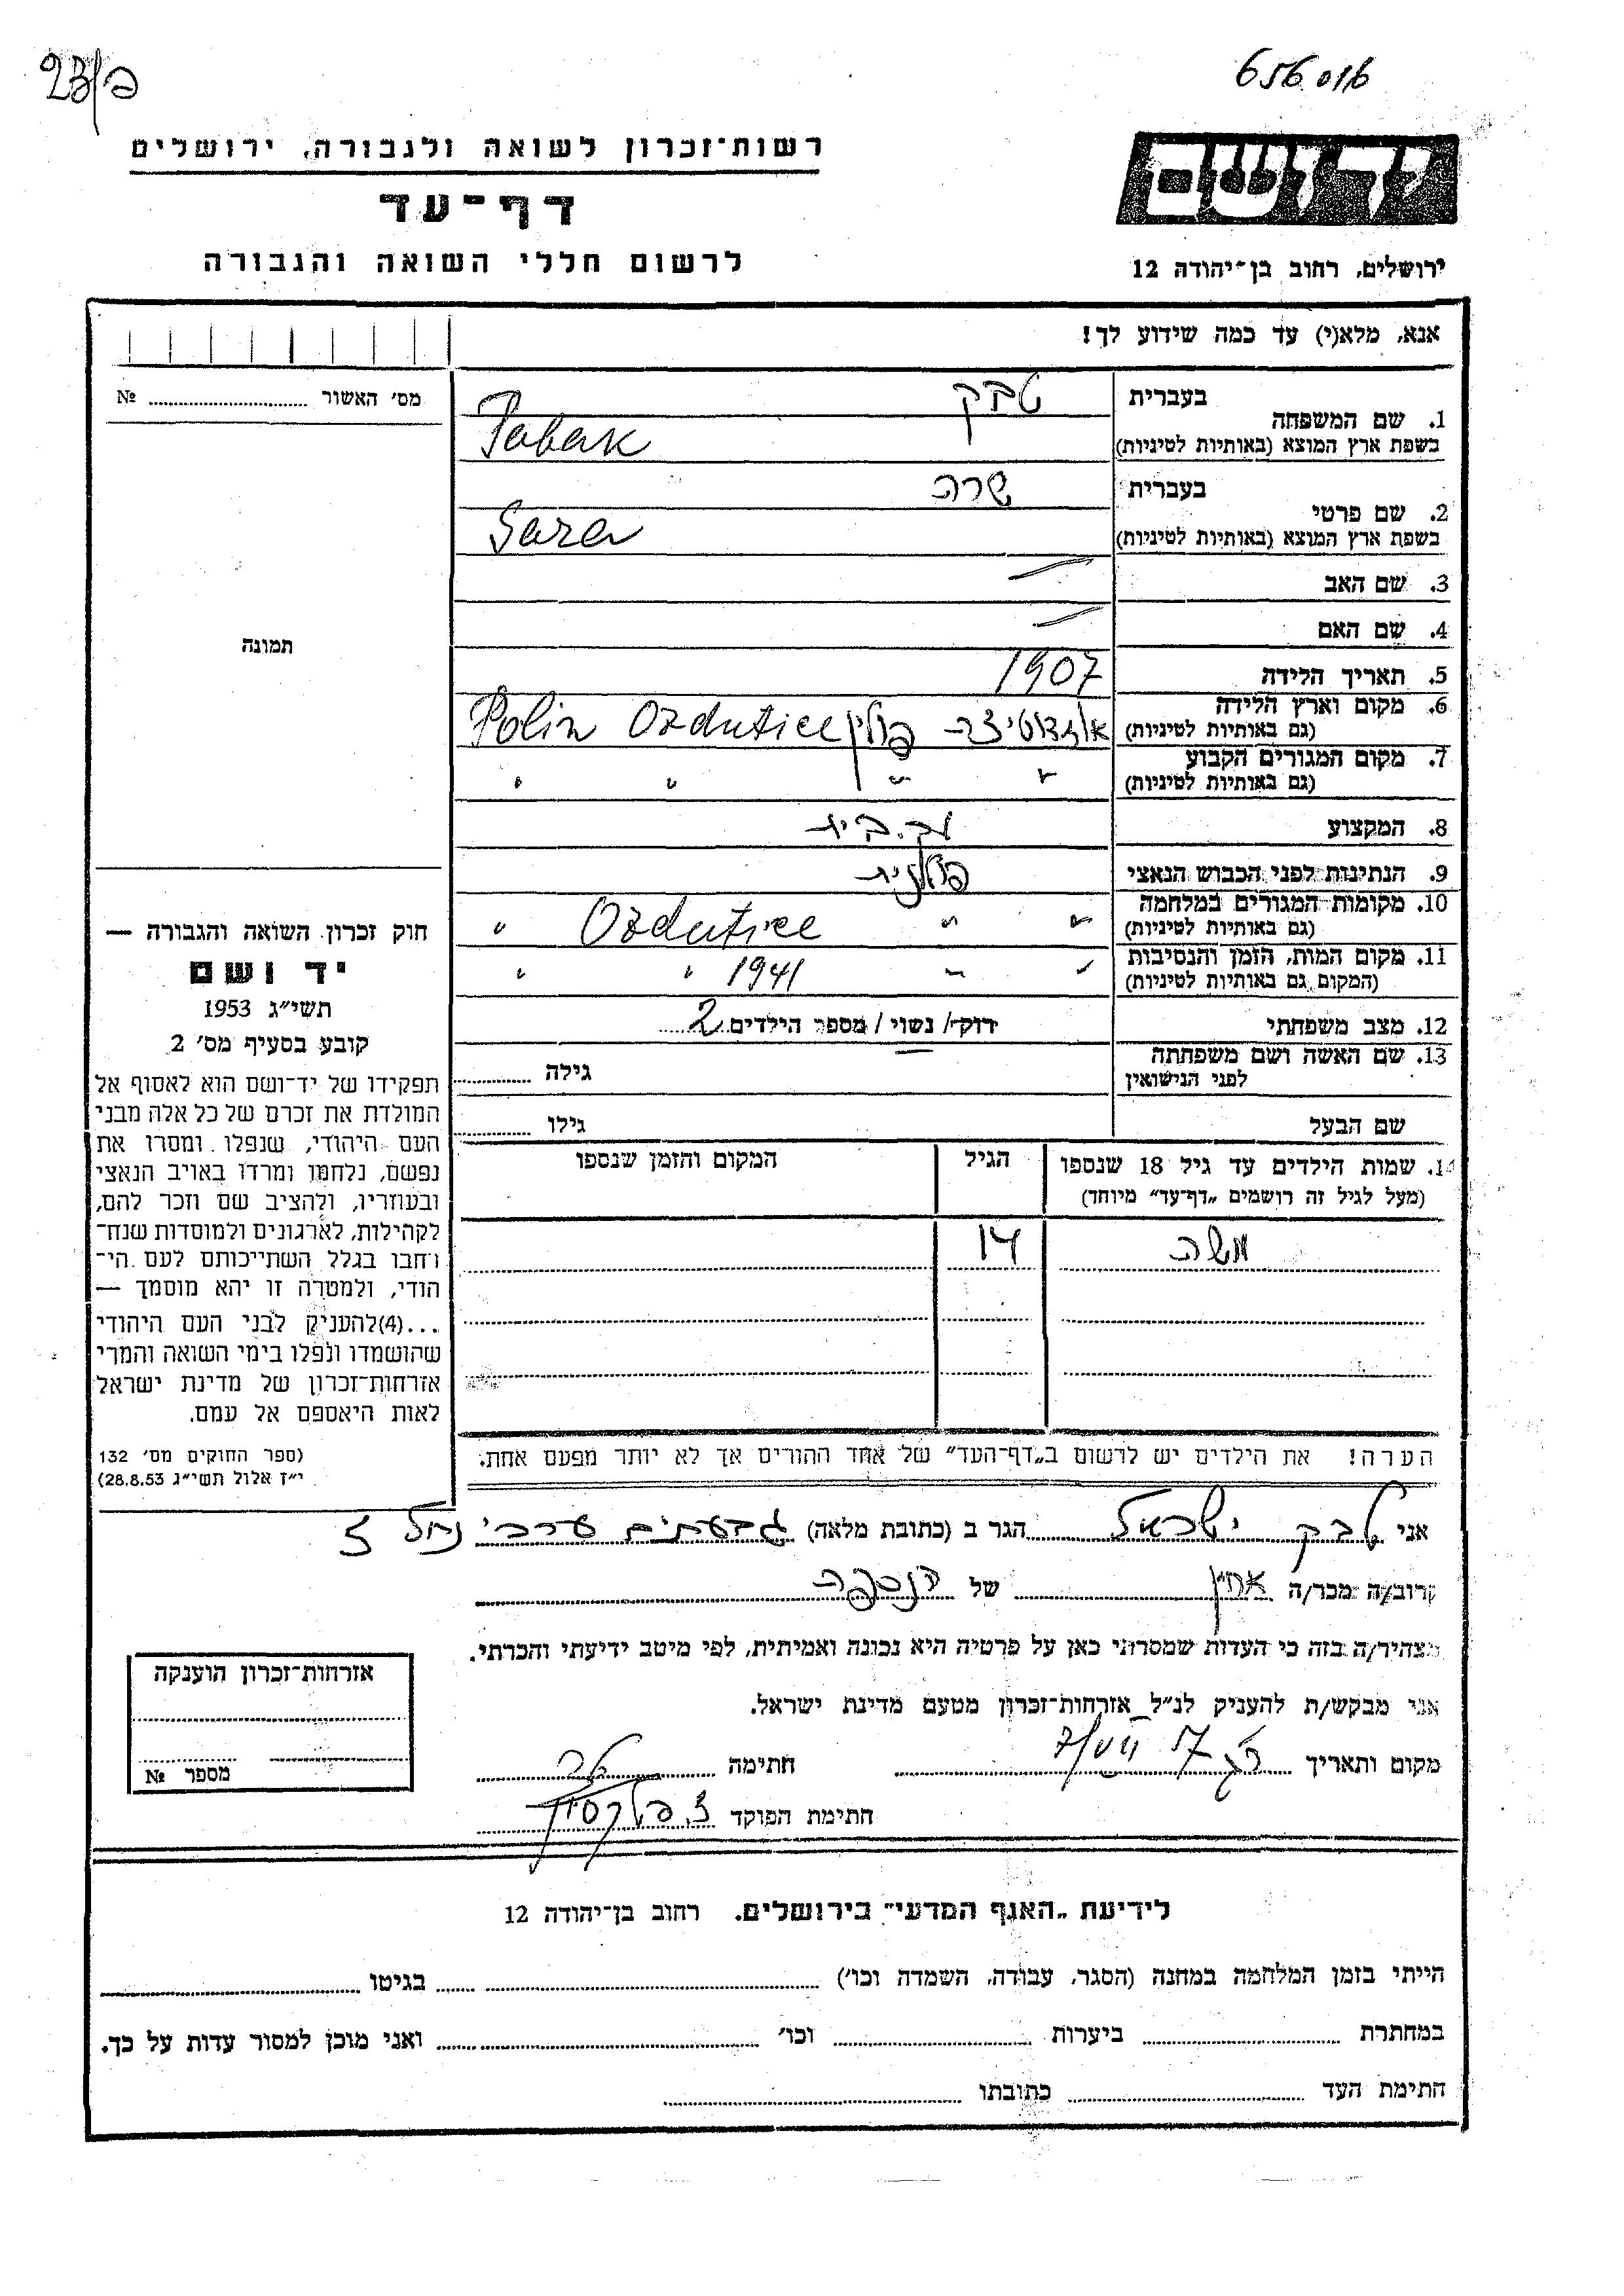 656016
רשות־זכרון לשואה ולגבורה, ירושלים
דף־עד
לרשום חללי השואה והגבורה
יד ושם
ירושלים, רחוב בן־יהודה 12
אנא, מלא(י) עד כמה שידוע לך!
מס׳ האשור № 
1. שם המשפחה בעברית טבק
בשפת ארץ המוצא (באותיות לטיניות) Tabak
2. שם פרטי בעברית שרה
בשפת ארץ המוצא (באותיות לטיניות) Sara
3. שם האב
4. שם האם
תמונה
5. תאריך הלידה 1907
6. מקום וארץ הלידה (גם באותיות לטיניות) פולין Ozdutice Polin
7. מקום המגורים הקבוע (גם באותיות לטיניות) " " " "
8. המקצוע עק. בית
9. הנתינות לפני הכבוש הנאצי פולנית
10. מקומות המגורים במלחמה (גם באותיות לטיניות) " " Ozdutice "
11. מקום המות, הזמן והנסיבות (המקום גם באותיות לטיניות) " " 1941 " "
12. מצב משפחתי רוק / נשוי / מספר הילדים 2
13. שם האשה ושם משפחתה לפני הנישואין גילה
שם הבעל גילו
14. שמות הילדים עד גיל 18 שנספו הגיל המקום והזמן שנספו
(מעל לגיל זה רושמים „דף־עד״ מיוחד)
משה 14
הערה! את הילדים יש לרשום ב„דף־העד״ של אחד ההורים אך לא יותר מפעם אחת.
חוק זכרון השואה והגבורה —
יד ושם
תשי״ג 1953
קובע בסעיף מס׳ 2
תפקידו של יד־ושם הוא לאסוף אל
המולדת את זכרם של כל אלה מבני
העם היהודי, שנפלו ומסרו את
נפשם, נלחמו ומרדו באויב הנאצי
ובעוזריו, ולהציב שם וזכר להם,
לקהילות, לארגונים ולמוסדות שנח־
רחבו בגלל השתייכותם לעם הי־
הודי, ולמטרה זו יהא מוסמך —
...(4) להעניק לבני העם היהודי
שהושמדו ונפלו בימי השואה והמרי
אזרחות־זכרון של מדינת ישראל
לאות היאספם אל עמם.
(ספר החוקים מס׳ 132
י״ז אלול תשי״ג 28.8.53)
אני טבק ישראל הגר ב (כתובת מלאה) גבעתיים ערבי נחל 3
קרוב/ה מכר/ה אחין של הנספה
מצהיר/ה בזה כי העדות שמסרתי כאן על פרטיה היא נכונה ואמיתית, לפי מיטב ידיעתי והכרתי.
אני מבקש/ת להעניק לנ״ל אזרחות־זכרון מטעם מדינת ישראל.
מקום ותאריך חתימה
חתימת הפוקד
אזרחות־זכרון הוענקה
מספר №
לידיעת „האגף המדעי״ בירושלים. רחוב בן־יהודה 12
הייתי בזמן המלחמה במחנה (הסגר, עבודה, השמדה וכו׳) בגיטו
במחתרת ביערות וכו׳ ואני מוכן למסור עדות על כך.
חתימת העד כתובתו